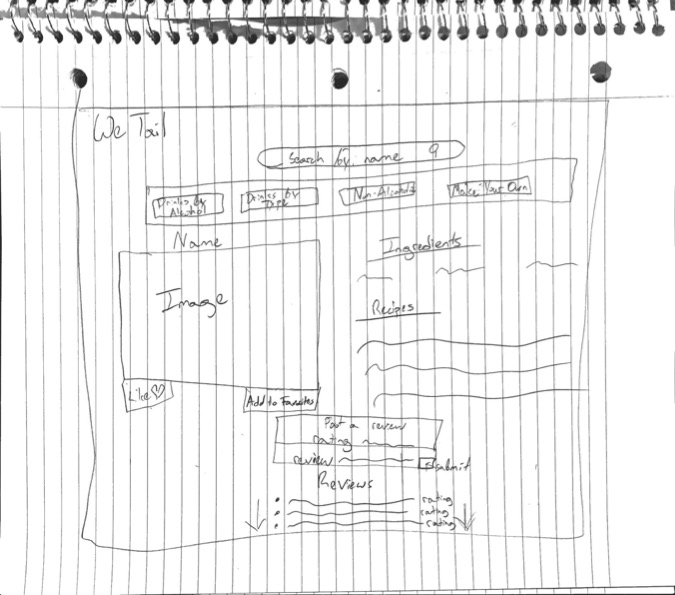 We Tail
Search by name
Drinks by Alcohol
Drinks by Type
Non-Alcoholic
Make Your Own
Name
Image
Like
Add to Favorites
Ingredients
Recipes
Post a review
rating
review
submit
Reviews
rating
rating
rating